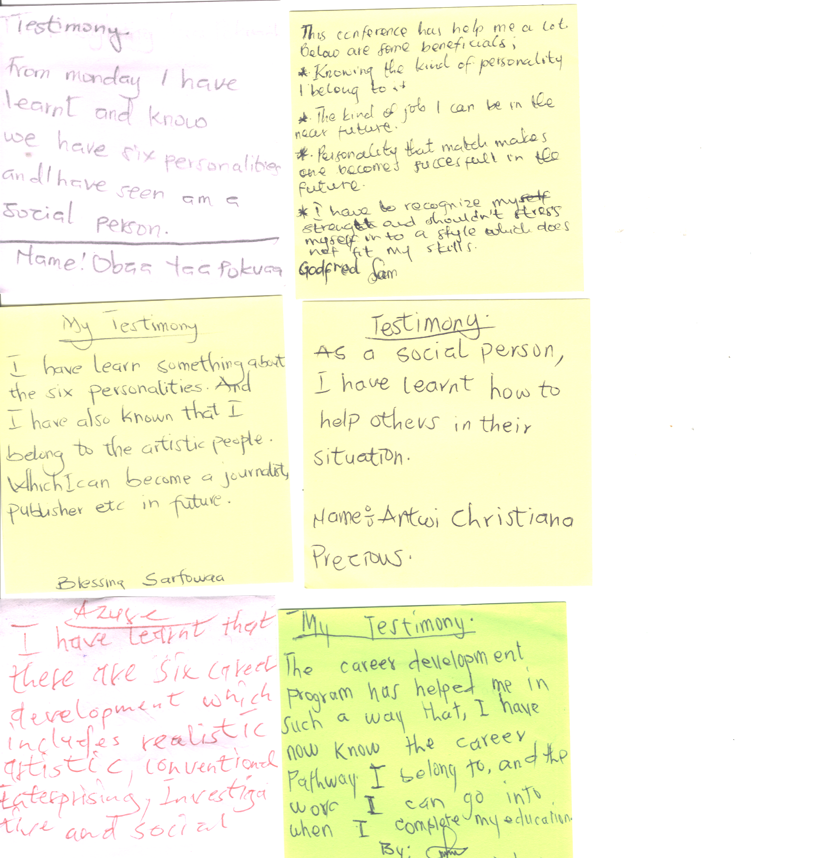 Testimony.
From monday I have
learnt and know
we have six personalities
and I have seen am a
social person.
Name: Obaa Yaa Pokuaa
This conference has help me a lot.
below are some beneficials;
* Knowing the kind of personality
I belong to.
* The kind of job I can be in the
near future.
* Personality that match makes
one becomes succesfull in the
future.
* I have to recognize myself
strength and shouldn't stress
myself in to a style which does
not fit my skills.
Godfred Sam
My Testimony
I have learn something about
the six personalities. And
I have also known that I
belong to the artistic people.
Which I can become a journalist,
publisher etc in future.
Blessing Sarfowaa
Testimony.
As a social person,
I have learnt how to
help others in their
situation.
Name: Antwi Christiana
Precious.
Azure
I have learnt that
there are six career
development which
includes realistic
artistic, conventional
Enterprising, Investiga
tive and social
My Testimony.
The career development
program has helped me in
such a way that, I have
now know the career
Pathway I belong to, and the
work I can go into
when I complete my education.
By: